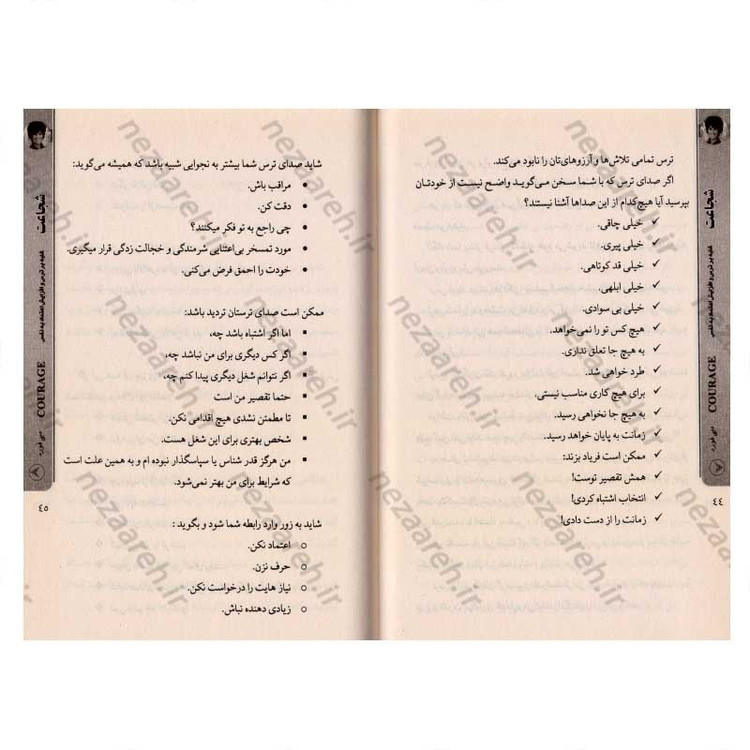 ترس تمامی تلاش‌ها و آرزوهای‌تان را نابود می‌کند.
اگر صدای ترس که با شما سخن می‌گوید واضح نیست از خودتان
بپرسید آیا هیچ‌کدام از این صداها آشنا نیستند؟
✓ خیلی چاقی.
✓ خیلی پیری.
✓ خیلی قد کوتاهی.
✓ خیلی ابلهی.
✓ خیلی بی سوادی.
✓ هیچ کس تو را نمی‌خواهد.
✓ به هیچ جا تعلق نداری.
✓ طرد خواهی شد.
✓ برای هیچ کاری مناسب نیستی.
✓ به هیچ جا نخواهی رسید.
✓ زمانت به پایان خواهد رسید.
✓ ممکن است فریاد بزند:
✓ همش تقصیر توست!
✓ انتخاب اشتباه کردی!
✓ زمانت را از دست دادی!
شجاعت
غلبه بر ترس و افزایش اعتماد به نفس
COURAGE
دبی فورد
٤٤
شاید صدای ترس شما بیشتر به نجوایی شبیه باشد که همیشه می‌گوید:
• مراقب باش.
• دقت کن.
• چی راجع به تو فکر میکنند؟
• مورد تمسخر بی‌اعتنایی شرمندگی و خجالت زدگی قرار میگیری.
• خودت را احمق فرض می‌کنی.
ممکن است صدای ترستان تردید باشد:
• اما اگر اشتباه باشد چه،
• اگر کس دیگری برای من نباشد چه،
• اگر نتوانم شغل دیگری پیدا کنم چه،
• حتما تقصیر من است
• تا مطمئن نشدی هیچ اقدامی نکن.
• شخص بهتری برای این شغل هست.
• من هرگز قدر شناس یا سپاسگذار نبوده ام و به همین علت است
که شرایط برای من بهتر نمی‌شود.
شاید به زور وارد رابطه شما شود و بگوید :
○ اعتماد نکن.
○ حرف نزن.
○ نیاز هایت را درخواست نکن.
○ زیادی دهنده نباش.
شجاعت
غلبه بر ترس و افزایش اعتماد به نفس
COURAGE
دبی فورد
٤٥
nezaareh.ir